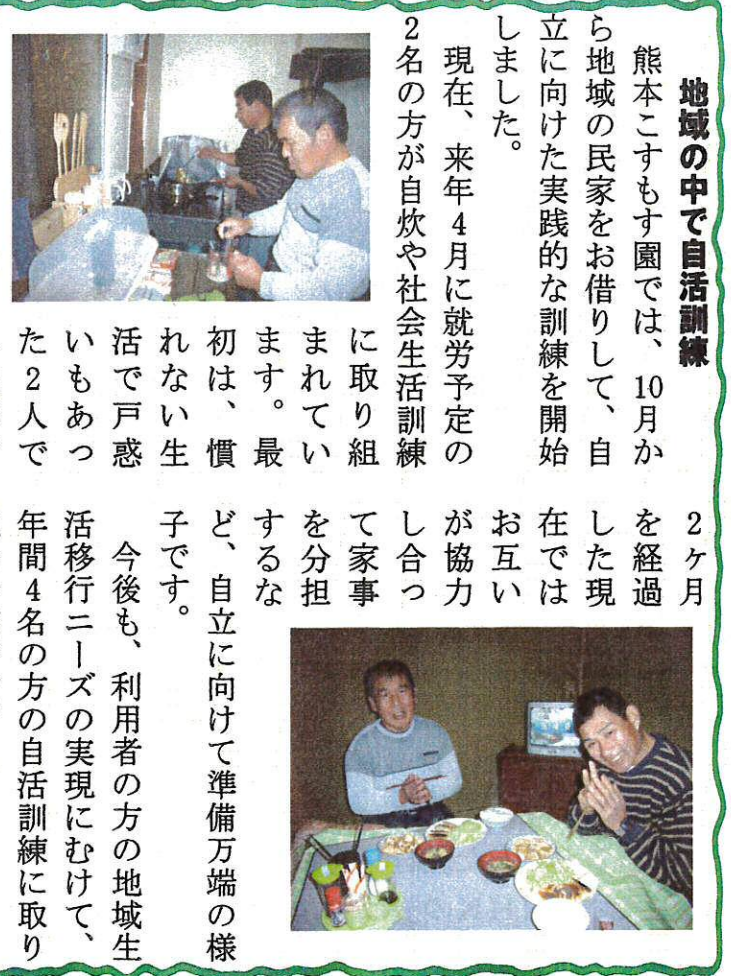 地域の中で自活訓練
熊本こすもす園では、10月か
ら地域の民家をお借りして、自
立に向けた実践的な訓練を開始
しました。
現在、来年4月に就労予定の
2名の方が自炊や社会生活訓練
に取り組
まれてい
ます。最
初は、慣
れない生
活で戸惑
いもあっ
た2人で
2ケ月
を経過
した現
在では
お互い
が協力
し合っ
て家事
を分担
するな
ど、自立に向けて準備万端の様
子です。
今後も、利用者の方の地域生
活移行ニーズの実現にむけて、
年間4名の方の自活訓練に取り